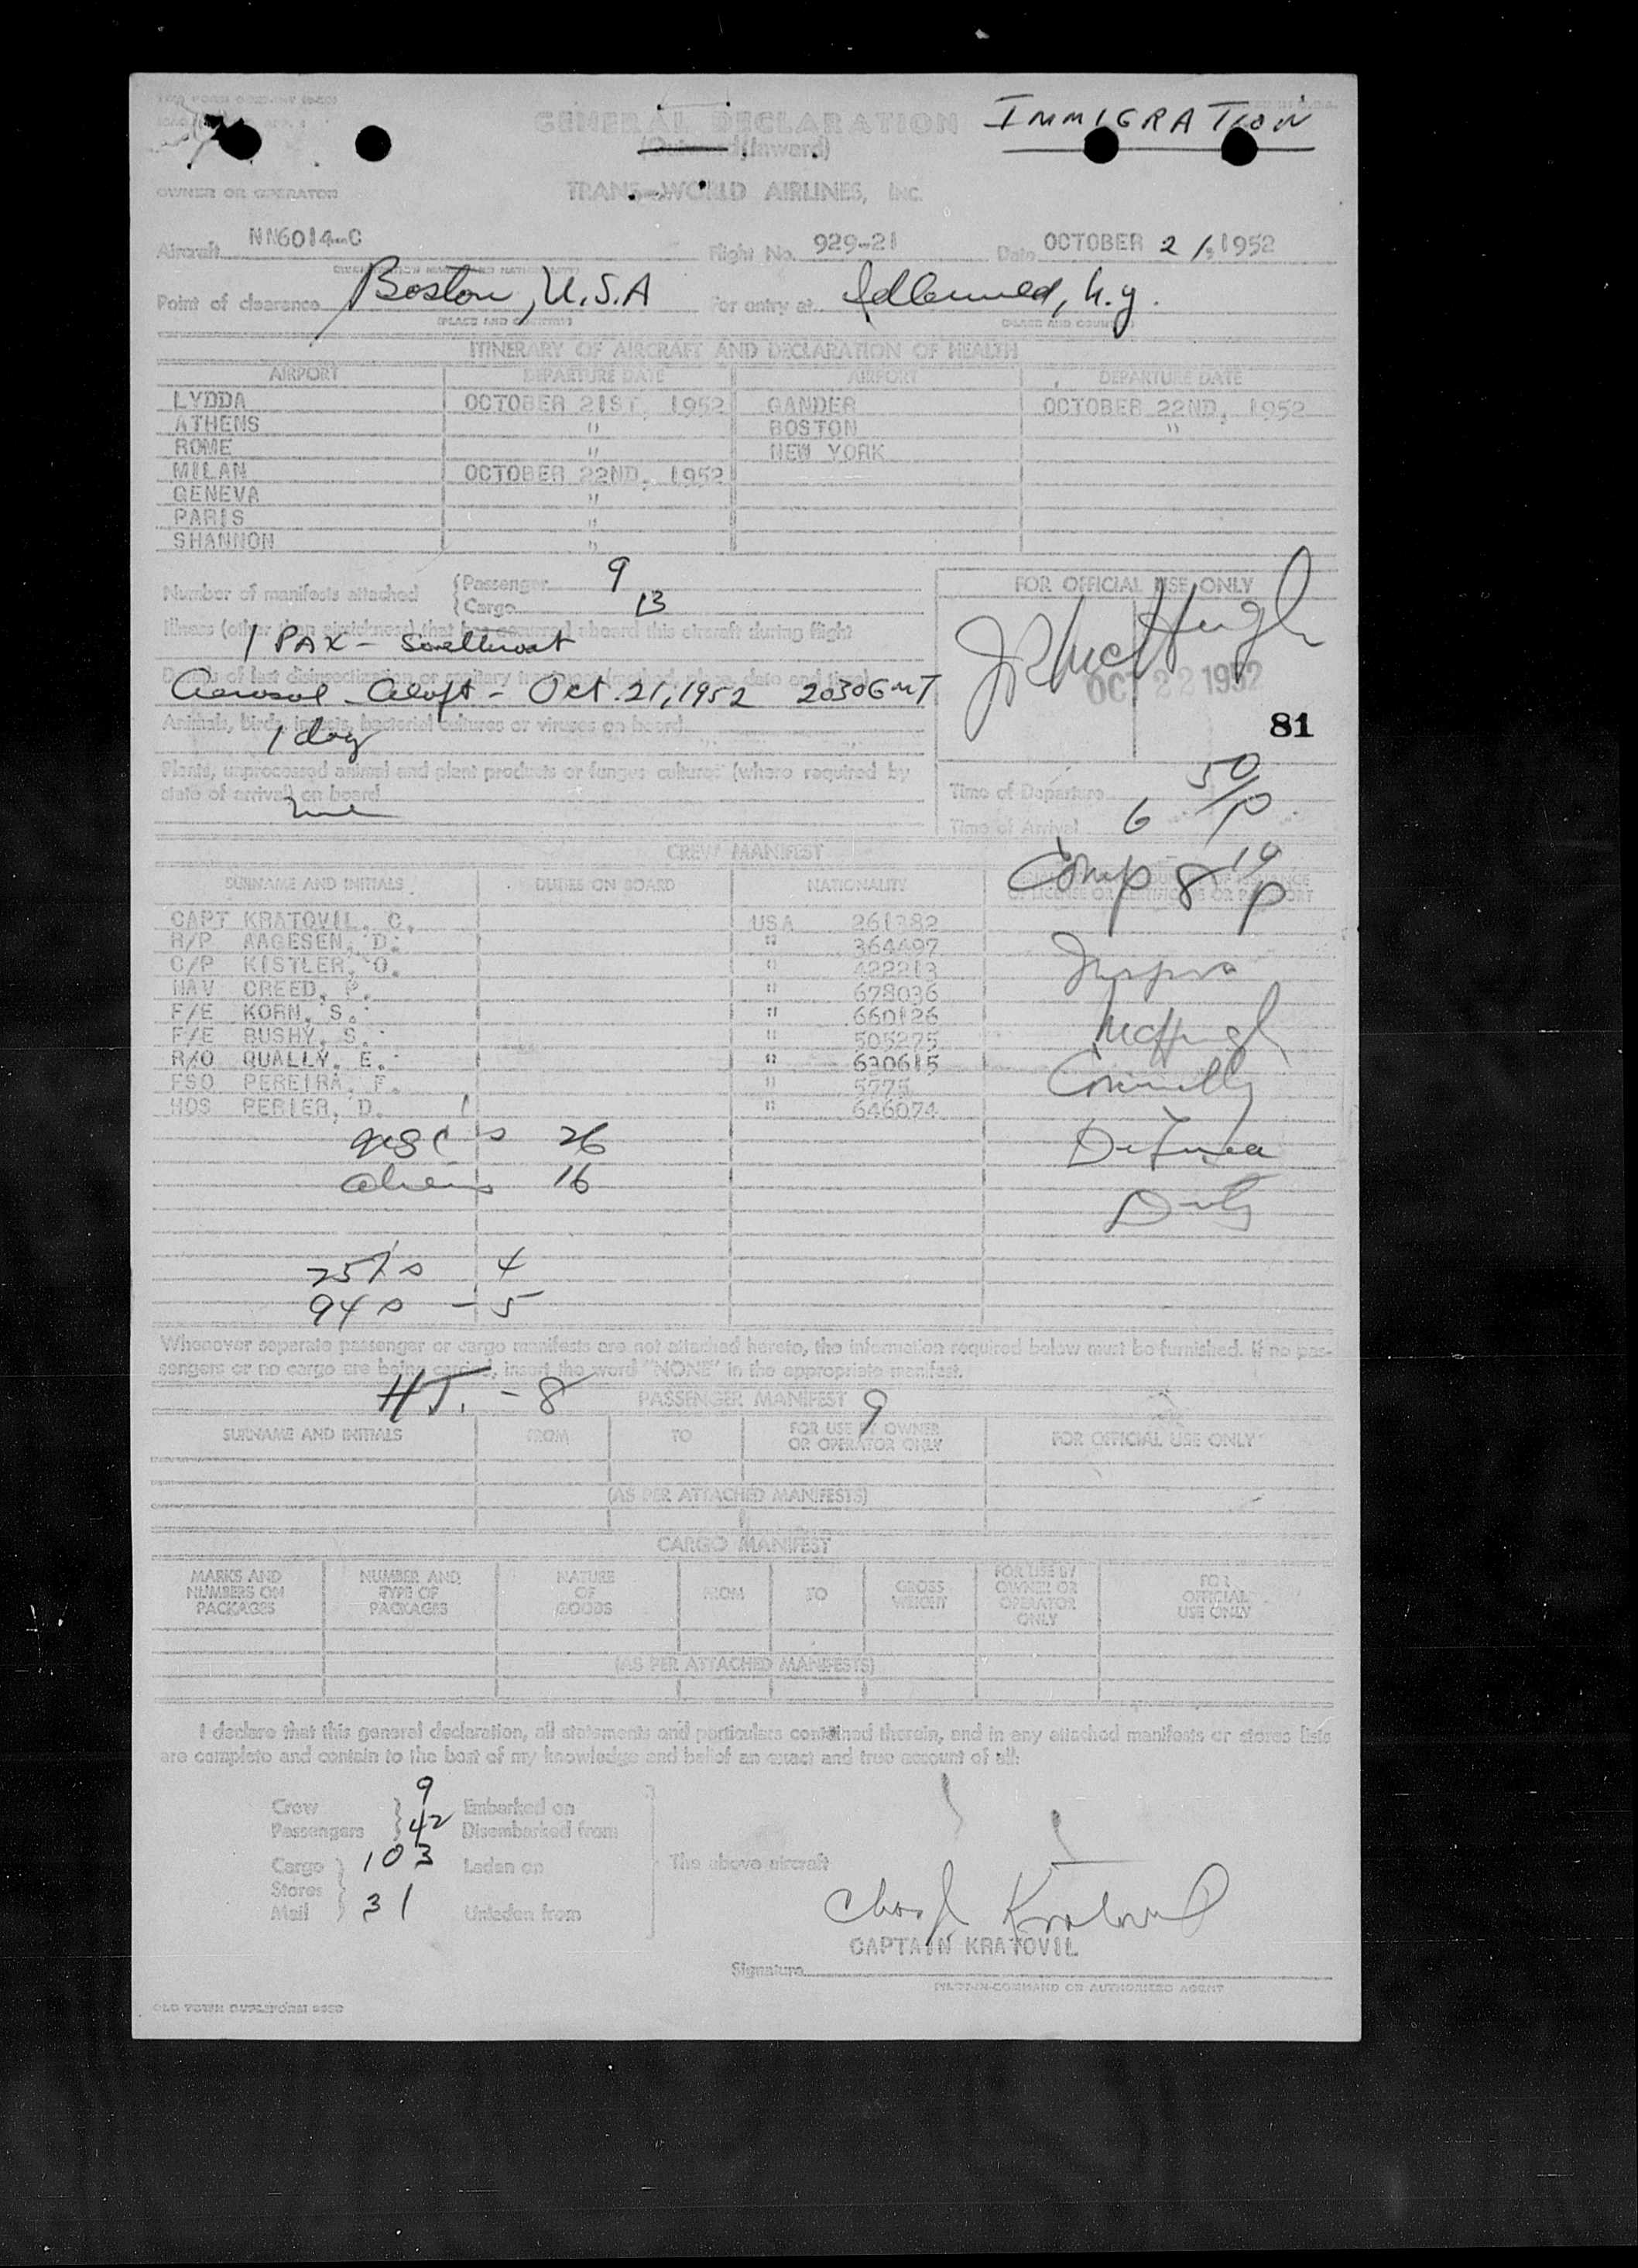 IMMIGRATION
GENERAL DECLARATION
(Outward)(Inward)
OWNER OR OPERATOR TRANS-WORLD AIRLINES, Inc.
Aircraft NN6014-C Flight No. 929-21 Date OCTOBER 21, 1952
Point of clearance Boston, U.S.A For entry at Idlewild, N.Y.
(PLACE AND COUNTRY) (PLACE AND COUNTRY)
ITINERARY OF AIRCRAFT AND DECLARATION OF HEALTH
AIRPORT DEPARTURE DATE AIRPORT DEPARTURE DATE
LYDDA OCTOBER 21ST, 1952 GANDER OCTOBER 22ND, 1952
ATHENS " BOSTON "
ROME " NEW YORK
MILAN OCTOBER 22ND, 1952
GENEVA "
PARIS "
SHANNON "
Number of manifests attached {Passenger 9
{Cargo 13
FOR OFFICIAL USE ONLY
Illness (other than airsickness) that has occurred aboard this aircraft during flight
1 PAX - Sorethroat
Details of last disinsectization or sanitary treatment (method, place, date and time)
Aerosol Aloft - Oct. 21, 1952 2030GMT
OCT 22 1952
81
Animals, birds, insects, bacterial cultures or viruses on board
1 dog
Plants, unprocessed animal and plant products or fungus cultures (where required by
state of arrival) on board
Time of Departure
Time of Arrival 6 50/P
CREW MANIFEST
Comp 8 19 P
SURNAME AND INITIALS DUTIES ON BOARD NATIONALITY
CAPT KRATOVIL, C. USA 261382
R/P AAGESEN, D. " 364497
C/P KISTLER, O. " 422213
NAV CREED, P. " 678036
F/E KORN, S. " 660126
F/E BUSHY, S. " 505275
R/O QUALLY, E. " 630615
FSO PEREIRA, F. " 5775
HOS PERLER, D. " 646074
Insprs
McHugh
Connolly
26
aliens 16
4
94s - 5
Whenever separate passenger or cargo manifests are not attached hereto, the information required below must be furnished. If no pas-
sengers or no cargo are being carried, insert the word "NONE" in the appropriate manifest.
HT. - 8
PASSENGER MANIFEST 9
SURNAME AND INITIALS FROM TO FOR USE BY OWNER OR OPERATOR ONLY FOR OFFICIAL USE ONLY
(AS PER ATTACHED MANIFESTS)
CARGO MANIFEST
MARKS AND NUMBERS ON PACKAGES NUMBER AND TYPE OF PACKAGES NATURE OF GOODS FROM TO GROSS WEIGHT FOR USE BY OWNER OR OPERATOR ONLY FOR OFFICIAL USE ONLY
(AS PER ATTACHED MANIFESTS)
I declare that this general declaration, all statements and particulars contained therein, and in any attached manifests or stores lists
are complete and contain to the best of my knowledge and belief an exact and true account of all:
Crew 9 Embarked on
Passengers 42 Disembarked from
Cargo 103 Laden on The above aircraft
Stores
Mail 31 Unladen from
Chas J. Kratovil
CAPTAIN KRATOVIL
Signature
PILOT-IN-COMMAND OR AUTHORIZED AGENT